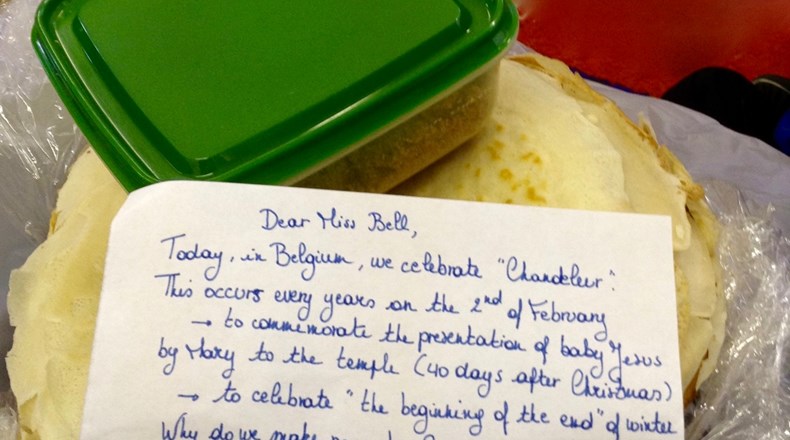 Dear Miss Bell,
Today, in Belgium, we celebrate "Chandeleur".
This occurs every years on the 2nd of February
→ to commemorate the presentation of baby Jesus
by Mary to the temple (40 days after Christmas)
→ to celebrate "the beginning of the end" of winter
Why do we make